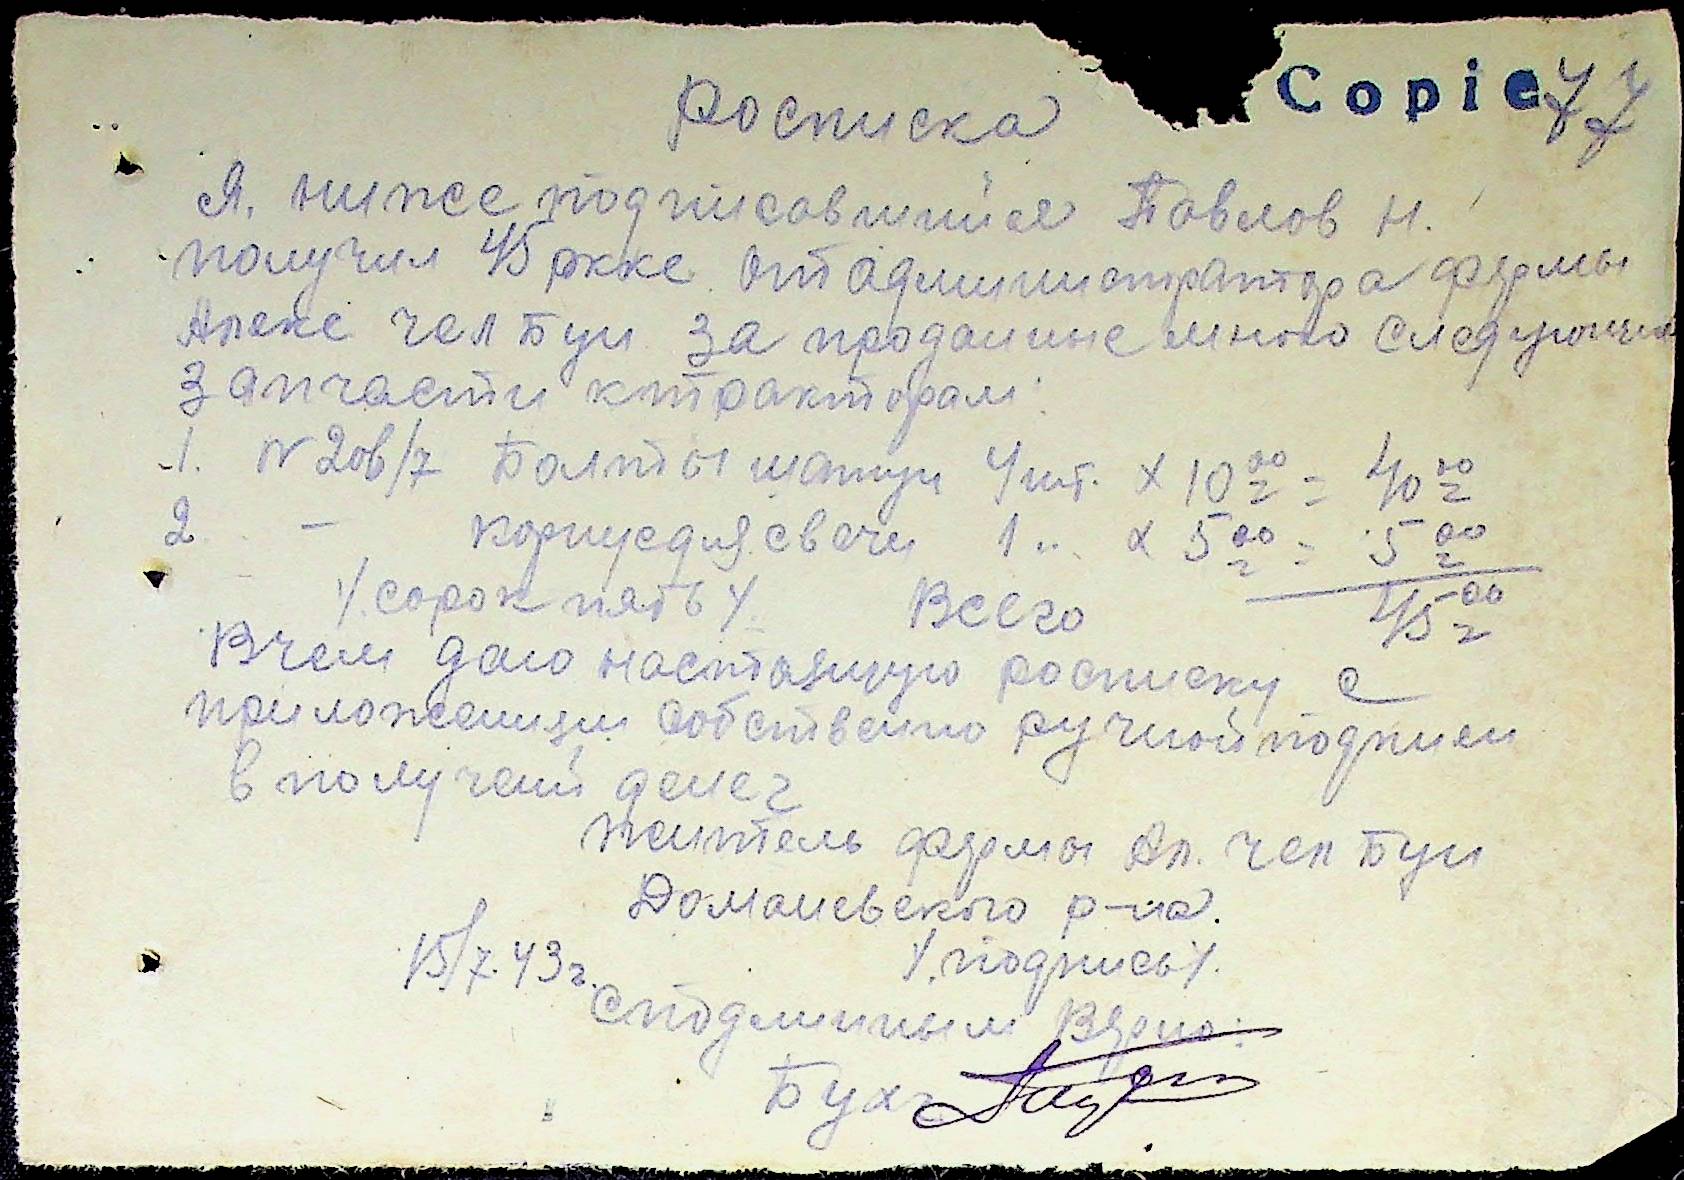 Copie 77
Росписка
Я, ниже подписавшийся Павлов Н.
получил 45 рккс от администратора фермы
Алекс чел Буи за проданные мною следующие
запчасти к тракторам:
1. N 20в/7 Болты шатун 4 шт. х 10 00 = 40 00
2. – Корпус для свечи 1 " х 5 00 = 5 00
/сорок пять/ Всего 45 00
В чем даю настоящую росписку с
приложением собственно ручной подписи
в получений денег
Житель фермы Ал. чел Буи
Доманевского р-на.
15/7.43 г. /подпись/.
С подлинным Верно:
Бухг.